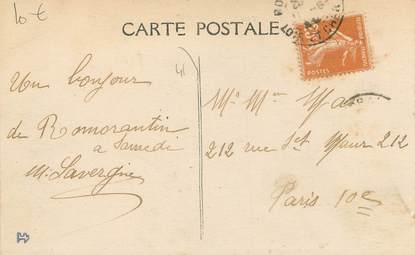 10 €
CARTE POSTALE
POSTES
41
Un bonjour
de Romorantin
a Samedi
M. Lavergne
Mr Mme
212 rue St Maur 212
Paris 10e